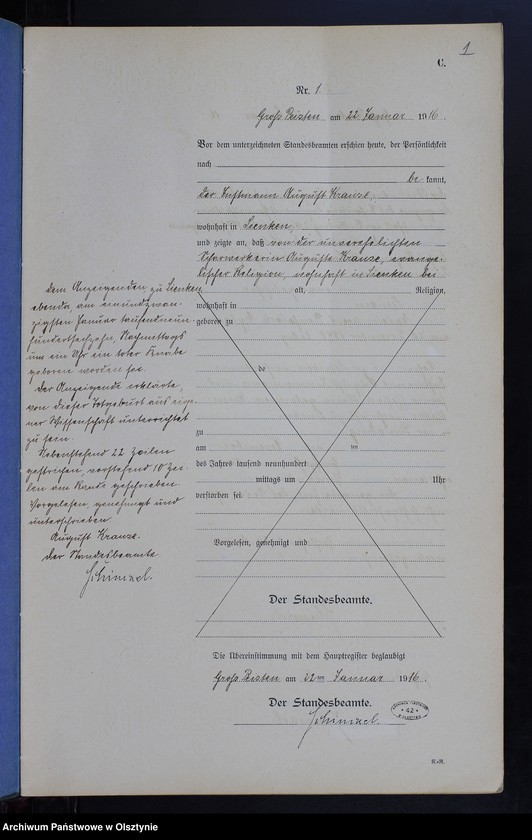 1
C.
Nr. 1
Groß Peisten am 22 Januar 1916.
Vor dem unterzeichneten Standesbeamten erschien heute, der Persönlichkeit
nach
be kannt,
der Instmann August Krause,
wohnhaft in Lienken,
und zeigte an, daß von der unverehelichten
Scharwerkerin Auguste Krause, evange-
lischer Religion, wohnhaft in Lienken bei
alt, Religion,
wohnhaft in
geboren zu
dem Anzeigenden zu Lienken
ebenda, am einundzwan-
zigsten Januar tausendneun-
hundertsechzehn, Nachmittags
um ein Uhr ein toter Knabe
geboren worden sei.
Der Anzeigende erklärte,
von dieser Totgeburt aus eige-
ner Wissenschaft unterrichtet
zu sein.
Nebenstehend 22 Zeilen
gestrichen, vorstehend 10 Zei-
len am Rande geschrieben
Vorgelesen, genehmigt und
unterschrieben
August Krause.
Der Standesbeamte
Schimael.
zu
am
des Jahres tausend neunhundert
mittags um Uhr
verstorben sei.
Vorgelesen, genehmigt und
Der Standesbeamte.
Die Übereinstimmung mit dem Hauptregister beglaubigt
Groß Peisten am 22ten Januar 1916.
Der Standesbeamte.
Schimael.
42
Archiwum Państwowe w Olsztynie